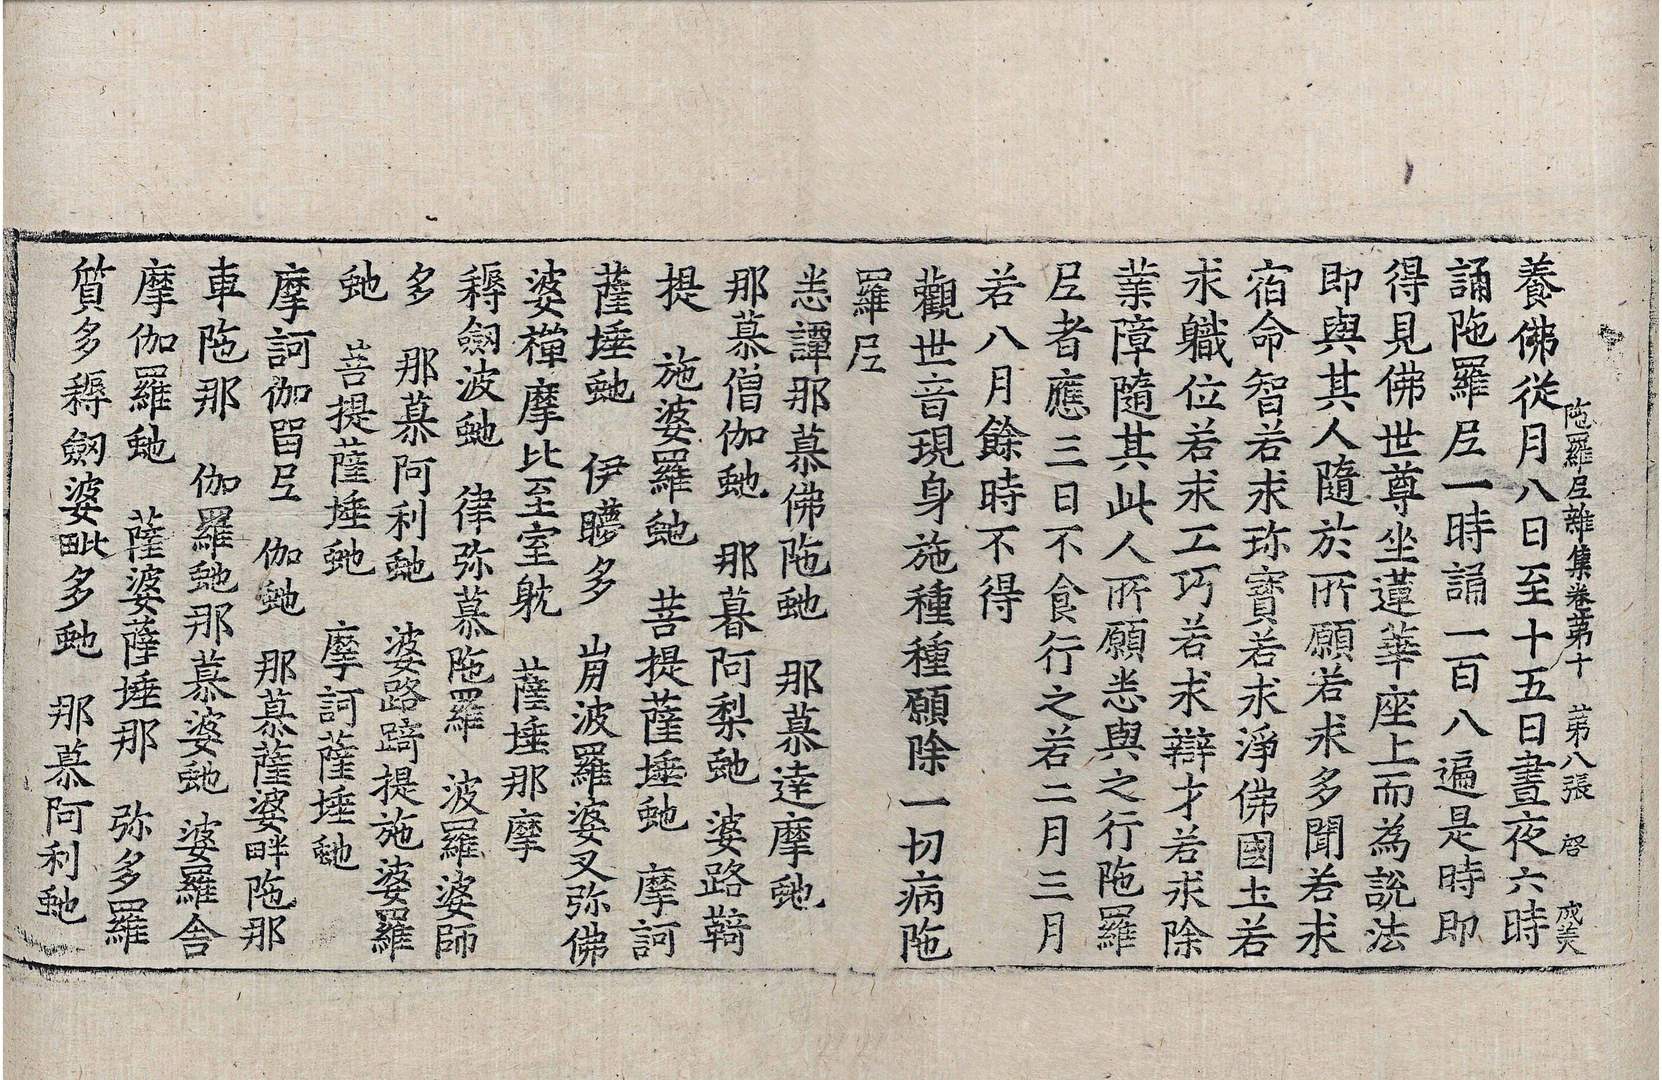 陁羅𡰱雜集卷第十　第八張　啓　成美
養佛從月八日至十五日晝夜六時
誦陁羅𡰱一時誦一百八遍是時即
得見佛世尊坐蓮華座上而為說法
即與其人隨於所願若求多聞若求
宿命智若求珎寶若求淨佛國圡若
求軄位若求工巧若求辯才若求除
業障隨其此人所願悉與之行陁羅
𡰱者應三日不食行之若二月三月
若八月餘時不得
觀世音現身施種種願除一切病陁
羅𡰱
悉譚那慕佛陁虵　那慕達摩虵
那慕僧伽虵　那暮阿梨虵　婆路鞊
提　施婆羅虵　菩提薩埵虵　摩訶
薩埵虵　伊𧄼多　𡵆波羅婆叉弥佛
婆禪摩比至室躭　薩埵那摩
䅵劔波虵　律弥慕陁羅　波羅婆師
多　那慕阿利虵　婆路踦提施婆羅
虵　菩提薩埵虵　摩訶薩埵虵
摩訶伽㽞𡰱　伽虵　那慕薩婆畔陁那
車陁那　伽羅虵那慕婆虵　婆羅舎
摩伽羅虵　薩婆薩埵那　弥多羅
質多䅵劔婆毗多虵　那慕阿利虵